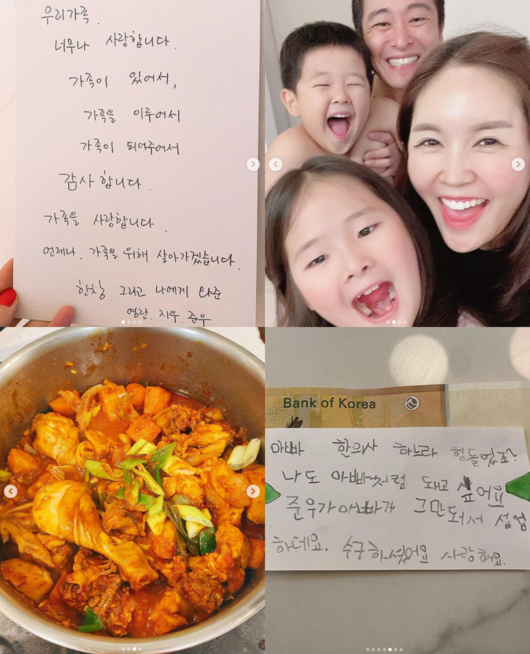 우리가족.
너무나 사랑합니다.
가족이 있어서,
가족을 이루어서
가족이 되어주어서
감사합니다.
가족을 사랑합니다.
언제나. 가족을 위해 살아가겠습니다.
한창. 그리고 나에게 와준
영란. 지우. 준우
Bank of Korea
아빠 한의사 하느라 힘들었죠?
나도 아빠처럼 돼고 싶어요
준우가 아빠가 그만둬서 섭섭
하데요. 수고하셨어요 사랑해요.